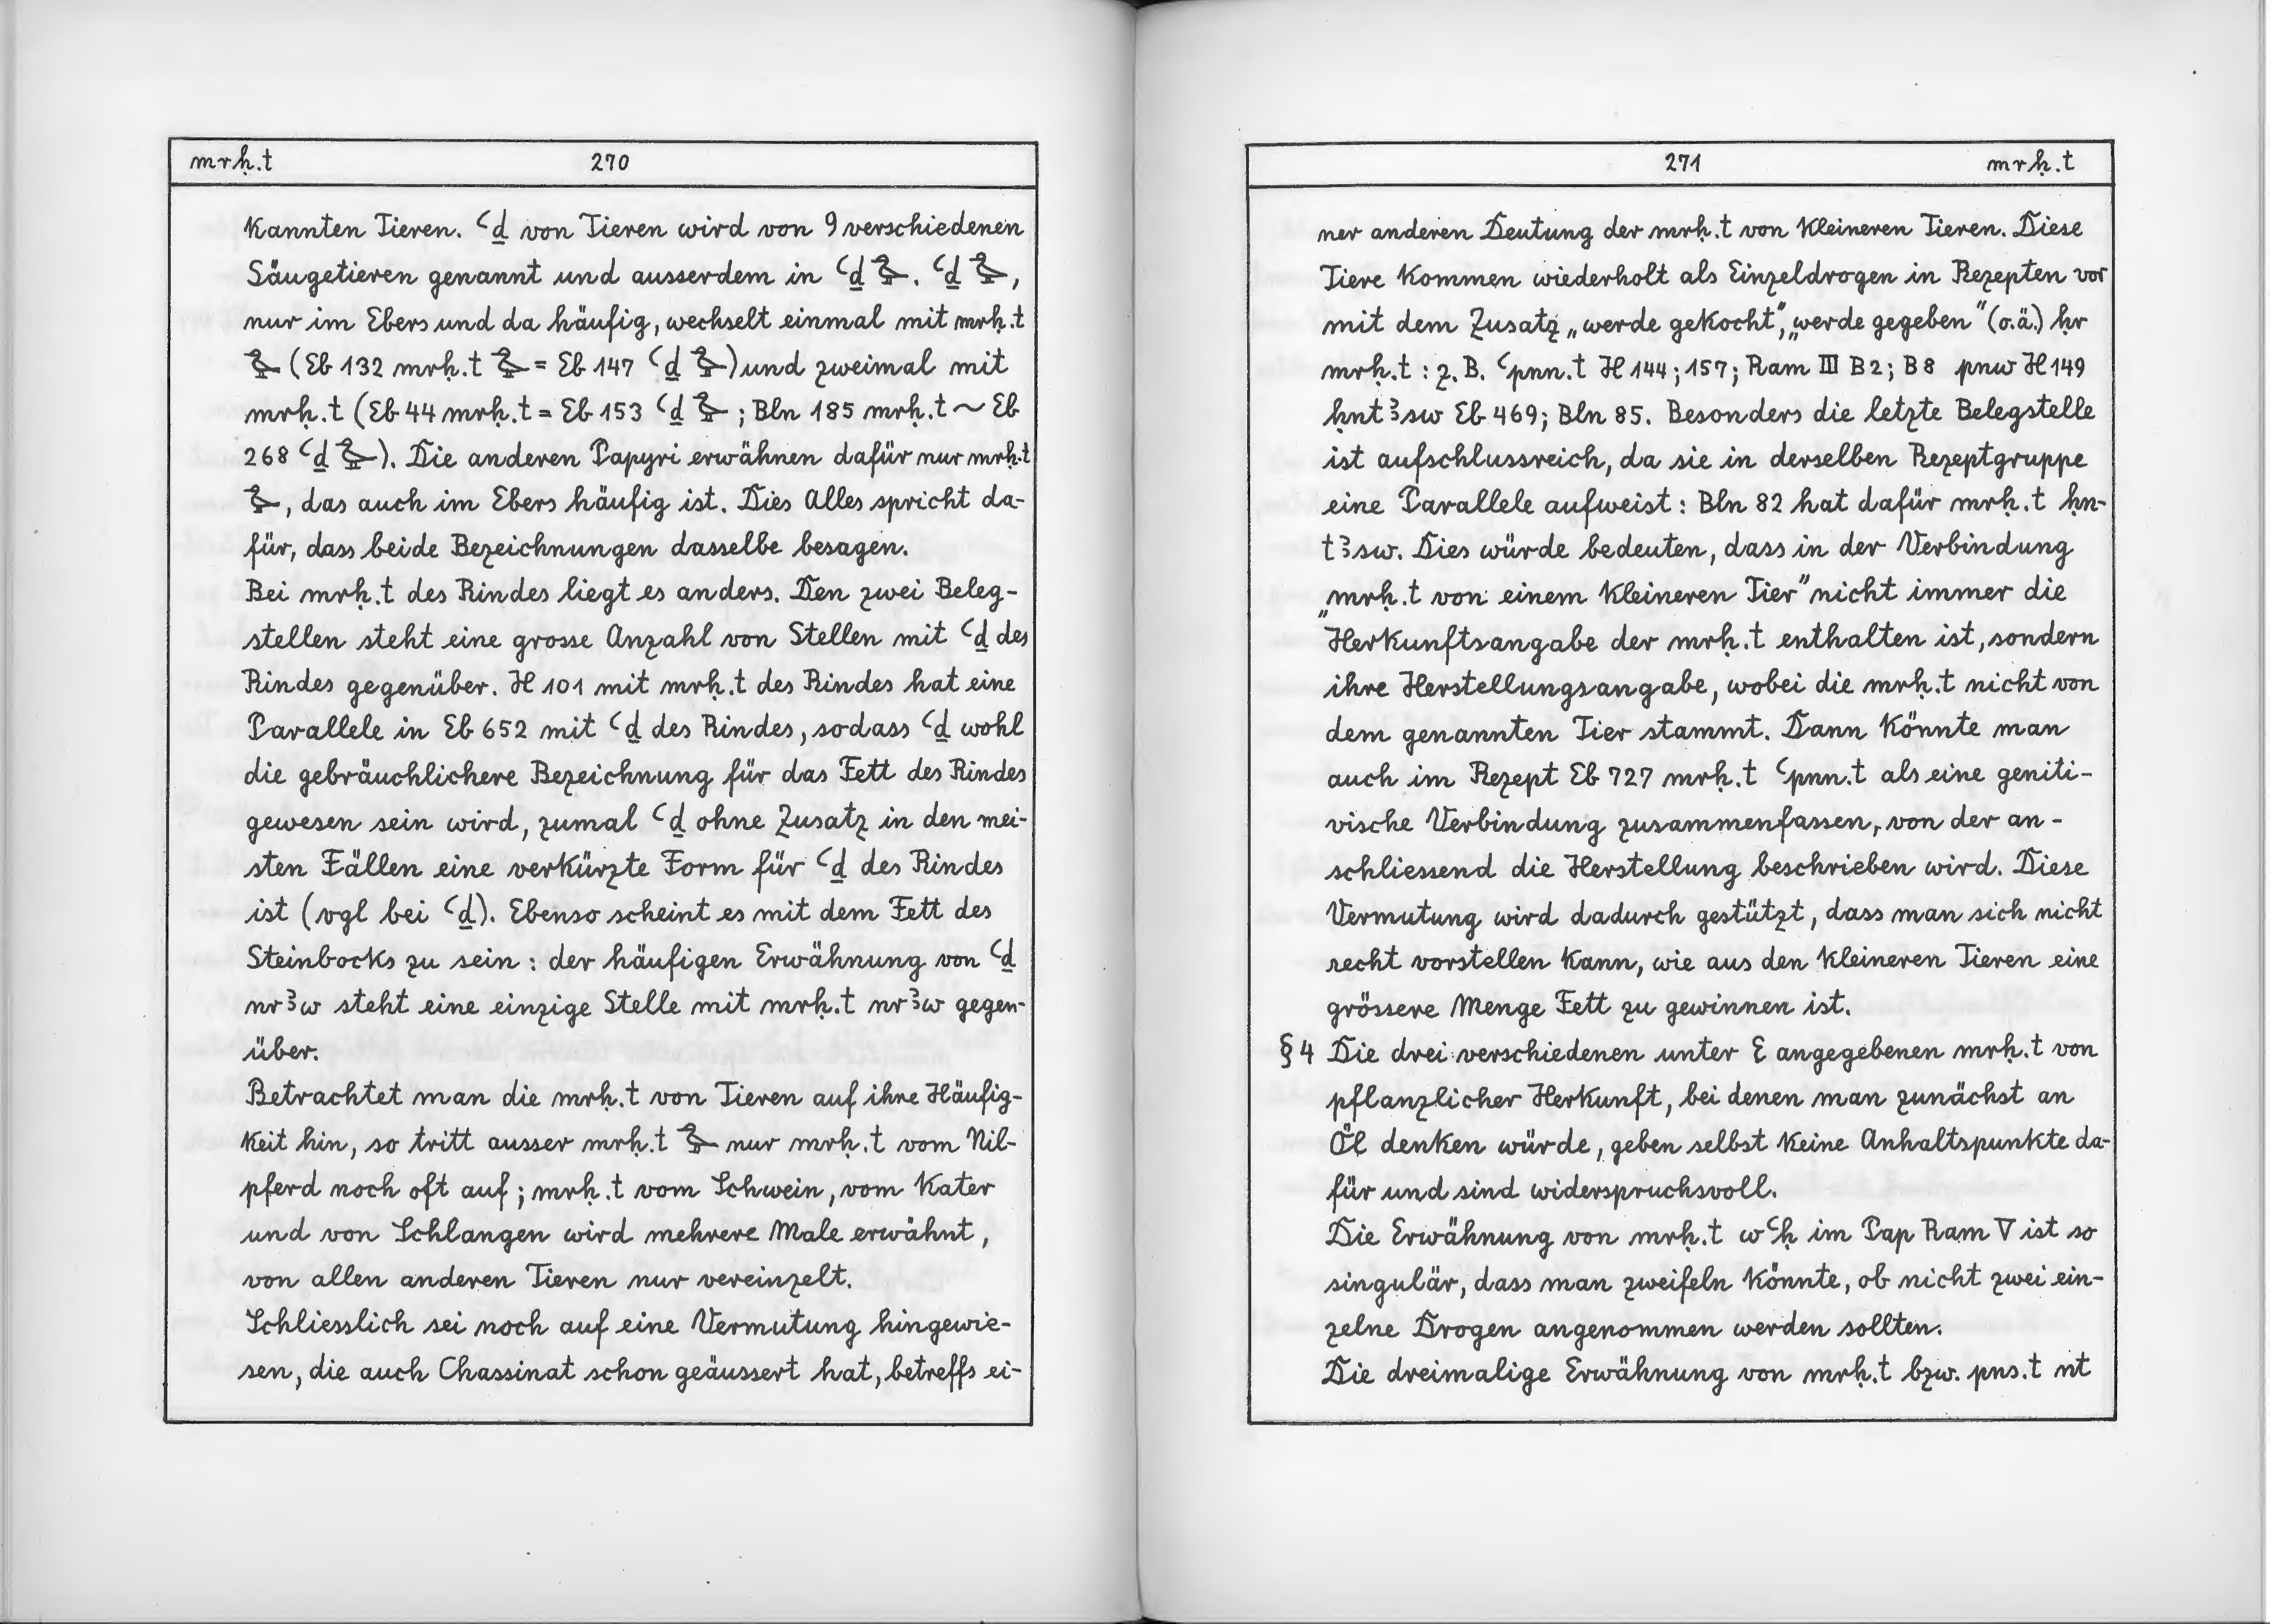 mrḥ.t 270
kannten Tieren. ꜥḏ von Tieren wird von 9 verschiedenen
Säugetieren genannt und ausserdem in ꜥḏ 𓅬. ꜥḏ 𓅬,
nur im Ebers und da häufig, wechselt einmal mit mrḥ.t
𓅬 (Eb 132 mrḥ.t 𓅬 = Eb 147 ꜥḏ 𓅬) und zweimal mit
mrḥ.t (Eb 44 mrḥ.t = Eb 153 ꜥḏ 𓅬; Bln 185 mrḥ.t ~ Eb
268 ꜥḏ 𓅬). Die anderen Papyri erwähnen dafür nur mrḥ.t
𓅬, das auch im Ebers häufig ist. Dies Alles spricht da-
für, dass beide Bezeichnungen dasselbe besagen.
Bei mrḥ.t des Rindes liegt es anders. Den zwei Beleg-
stellen steht eine grosse Anzahl von Stellen mit ꜥḏ des
Rindes gegenüber. H 101 mit mrḥ.t des Rindes hat eine
Parallele in Eb 652 mit ꜥḏ des Rindes, sodass ꜥḏ wohl
die gebräuchlichere Bezeichnung für das Fett des Rindes
gewesen sein wird, zumal ꜥḏ ohne Zusatz in den mei-
sten Fällen eine verkürzte Form für ꜥḏ des Rindes
ist (vgl bei ꜥḏ). Ebenso scheint es mit dem Fett des
Steinbocks zu sein: der häufigen Erwähnung von ꜥḏ
nrꜣw steht eine einzige Stelle mit mrḥ.t nrꜣw gegen-
über.
Betrachtet man die mrḥ.t von Tieren auf ihre Häufig-
keit hin, so tritt ausser mrḥ.t 𓅬 nur mrḥ.t vom Nil-
pferd noch oft auf; mrḥ.t vom Schwein, vom Kater
und von Schlangen wird mehrere Male erwähnt,
von allen anderen Tieren nur vereinzelt.
Schliesslich sei noch auf eine Vermutung hingewie-
sen, die auch Chassinat schon geäussert hat, betreffs ei-
271 mrḥ.t
ner anderen Deutung der mrḥ.t von kleineren Tieren. Diese
Tiere kommen wiederholt als Einzeldrogen in Rezepten vor
mit dem Zusatz „werde gekocht", „werde gegeben" (o.ä.) ḥr
mrḥ.t : z. B. ꜥpnn.t H 144; 157; Ram III B 2; B 8 pnw H 149
ḥntꜣsw Eb 469; Bln 85. Besonders die letzte Belegstelle
ist aufschlussreich, da sie in derselben Rezeptgruppe
eine Parallele aufweist: Bln 82 hat dafür mrḥ.t ḥn-
tꜣsw. Dies würde bedeuten, dass in der Verbindung
„mrḥ.t von einem kleineren Tier" nicht immer die
Herkunftsangabe der mrḥ.t enthalten ist, sondern
ihre Herstellungsangabe, wobei die mrḥ.t nicht von
dem genannten Tier stammt. Dann könnte man
auch im Rezept Eb 727 mrḥ.t ꜥpnn.t als eine geniti-
vische Verbindung zusammenfassen, von der an-
schliessend die Herstellung beschrieben wird. Diese
Vermutung wird dadurch gestützt, dass man sich nicht
recht vorstellen kann, wie aus den kleineren Tieren eine
grössere Menge Fett zu gewinnen ist.
§ 4 Die drei verschiedenen unter E angegebenen mrḥ.t von
pflanzlicher Herkunft, bei denen man zunächst an
Öl denken würde, geben selbst keine Anhaltspunkte da-
für und sind widerspruchsvoll.
Die Erwähnung von mrḥ.t wꜥḥ im Pap Ram V ist so
singulär, dass man zweifeln könnte, ob nicht zwei ein-
zelne Drogen angenommen werden sollten.
Die dreimalige Erwähnung von mrḥ.t bzw. pns.t nt